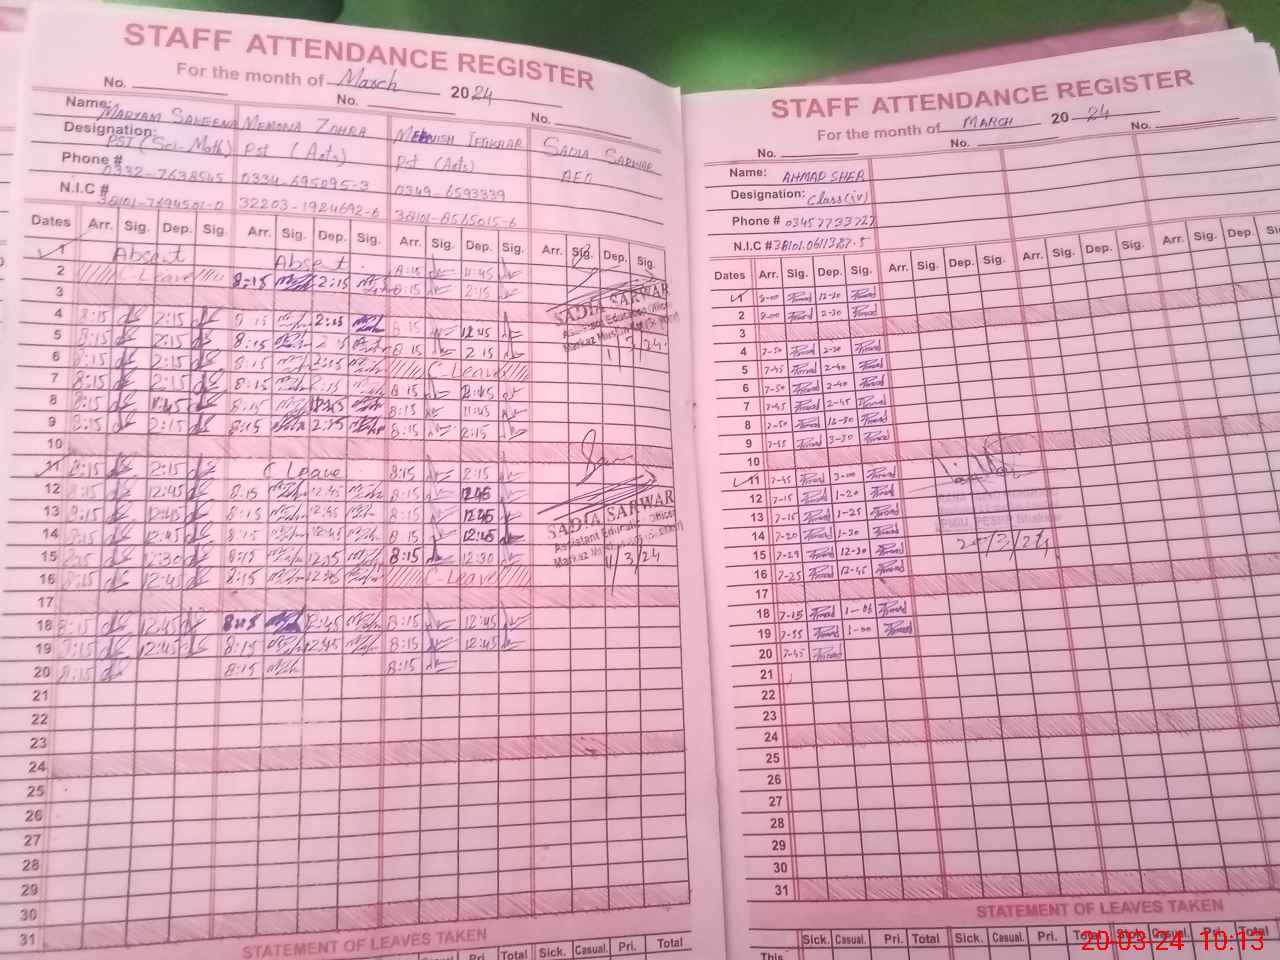 STAFF ATTENDANCE REGISTER
For the month of March 2024
No. No. No.
Name: MARYAM SAKEENA MEMONA ZOHRA MEHNISH IFTIKHAR SADIA SARWAR
Designation: PST (Sci-Math) Pst (Arts) Pst (Arts) AEO
Phone # 0332-7638545 0334-695095-3 0349-6593339
N.I.C # 38101-7694501-0 32203-1924692-6 38101-8565015-6
Dates Arr. Sig. Dep. Sig. Arr. Sig. Dep. Sig. Arr. Sig. Dep. Sig. Arr. Sig. Dep. Sig.
1 Absent Absent 8:15 11:45
2 C-Leave 8:15 2:15 8:15 2:15
3
4 8:15 2:15 8:15 2:15 8:15 12:45
5 8:15 2:15 8:15 2:15 8:15 2:15
6 8:15 2:15 8:15 2:15 C-Leave
7 8:15 2:15 8:15 2:15 8:15
8 8:15 11:45 8:15 8:15 11:45
9 8:15 2:15 8:15 2:15 8:15 2:15
10
11 8:15 2:15 C Leave 8:15 2:15
12 8:15 12:45 8:15 12:45 8:15 12:45
13 8:15 12:45 8:15 12:45 8:15 12:45
14 8:15 12:45 8:15 12:45 8:15 12:45
15 8:15 12:30 8:15 8:15 12:30
16 8:15 12:45 8:15 12:45 C-Leave
17
18 8:15 12:45 8:15 12:45 8:15 12:45
19 8:15 12:45 8:15 12:45 8:15 12:45
20 8:15 8:15 8:15
21
22
23
24
25
26
27
28
29
30
31
SADIA SARWAR
Assistant Education Officer
Markaz
1/3/24
SADIA SARWAR
Assistant Education Officer
Markaz
11/3/24
STATEMENT OF LEAVES TAKEN
Total Sick. Casual. Pri. Total
STAFF ATTENDANCE REGISTER
For the month of MARCH 2024
No. No. No.
Name: AHMAD SHER
Designation: Class(iv)
Phone # 03457733727
N.I.C # 38101.0611387.5
Dates Arr. Sig. Dep. Sig. Arr. Sig. Dep. Sig. Arr. Sig. Dep. Sig. Arr. Sig. Dep. Sig.
1 8-00 12-30
2 8-00 2-30
3
4 7-50 2-30
5 7-45 2-40
6 7-50 2-40
7 7-45 2-45
8 7-50 12-30
9 7-45 3-30
10
11 7-45 3-00
12 7-15 1-20
13 7-15 1-25
14 7-20 1-30
15 7-29 12-30
16 7-25 12-45
17
18 7-15 1-05
19 7-55 1-00
20 7-45
21
22
23
24
25
26
27
28
29
30
31
STATEMENT OF LEAVES TAKEN
This Sick. Casual. Pri. Total Sick. Casual. Pri. Total Sick. Casual. Pri. Total
20-03-24 10:13